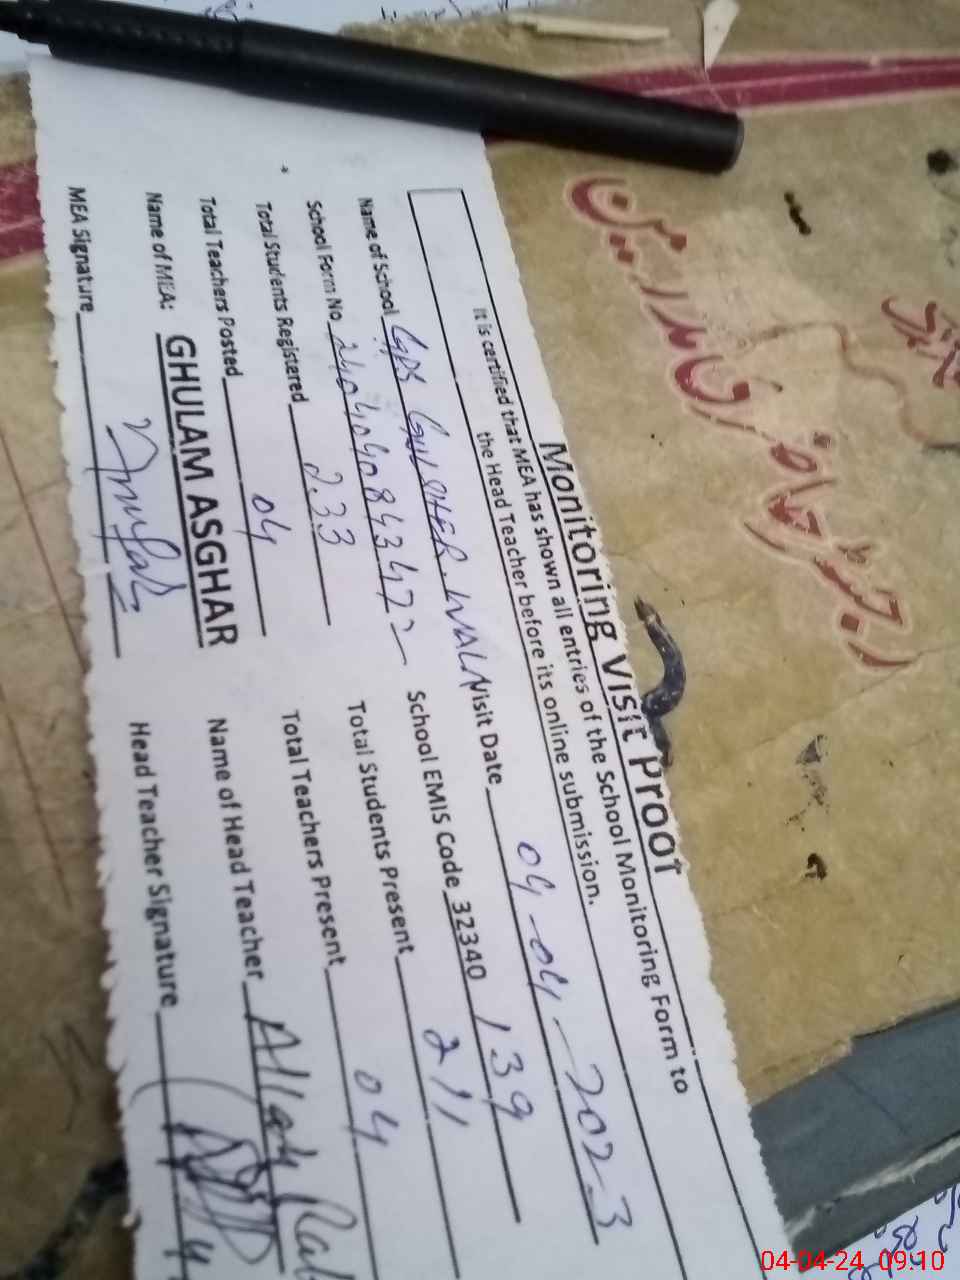 Monitoring Visit Proof
It is certified that MEA has shown all entries of the School Monitoring Form to
the Head Teacher before its online submission.
Name of School GPS GUL SHER WALA Visit Date 04-04-2023
School Form No School EMIS Code 32340 139
Total Students Registered 233 Total Students Present 211
Total Teachers Posted 04 Total Teachers Present 04
Name of MEA: GHULAM ASGHAR Name of Head Teacher Allah
MEA Signature Head Teacher Signature
رجسٹر حاضری مدرسین
04-04-24 09:10